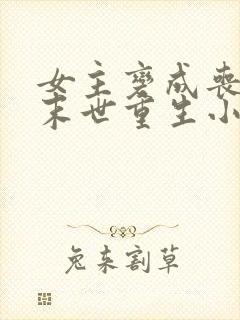 女主变成丧
末世重生小
兔来割草